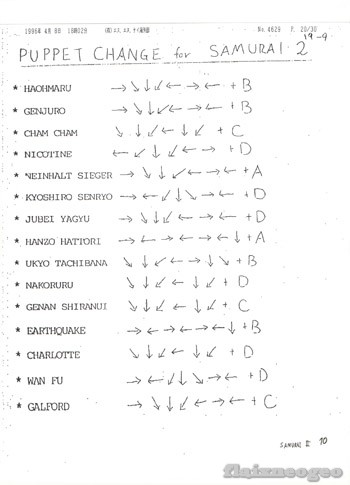 1996年 4月 9日 No. 4629 P. 20/30
19-9
PUPPET CHANGE for SAMURAI 2
* HAOHMARU → ↘ ↓ ↙ ← → ← + B
* GENJURO → ↘ ↓ ↙ ← → ← + B
* CHAM CHAM ↘ ↓ ↙ ← ↓ ↙ + C
* NICOTINE ← ↙ ↓ ↙ ← → + D
* NEINHALT SIEGER → ↘ ↓ ↙ ← → ← + A
* KYOSHIRO SENRYO → ← ↙ ↓ ↘ → ← + D
* JUBEI YAGYU → ↘ ↓ ↙ ← → ← + D
* HANZO HATTORI → ← → ← → ← ↓ + A
* UKYO TACHIBANA ↘ ↓ ↙ ← → ↓ ↘ + B
* NAKORURU ↘ ↓ ↙ ← ↓ ↙ + D
* GENAN SHIRANUI ↘ ↓ ↙ ← ↓ ↙ + C
* EARTHQUAKE → ← → ← → ← ↓ + B
* CHARLOTTE ↘ ↓ ↙ ← ↓ ↙ + D
* WAN FU → ← ↙ ↓ ↘ → ← + D
* GALFORD → ↘ ↓ ↙ ← → ← + C
SAMURAI II 10
flaixneogeo